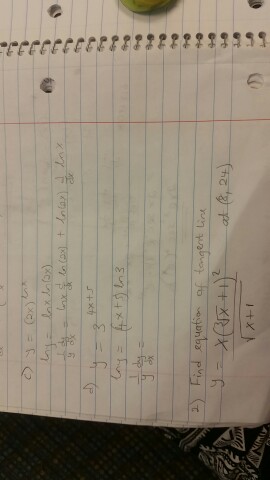 c) y = (2x)^{ln x}
ln y = ln x ln(2x)
\frac{1}{y} \frac{dy}{dx} = ln x \frac{d}{dx} ln(2x) + ln(2x) \frac{d}{dx} ln x
d) y = 3^{4x+5}
ln y = (4x+5) ln 3
\frac{1}{y} \frac{dy}{dx} =
2) Find equation of tangent line
y = \frac{x(\sqrt[3]{x}+1)^2}{\sqrt{x+1}} at (8, 24)